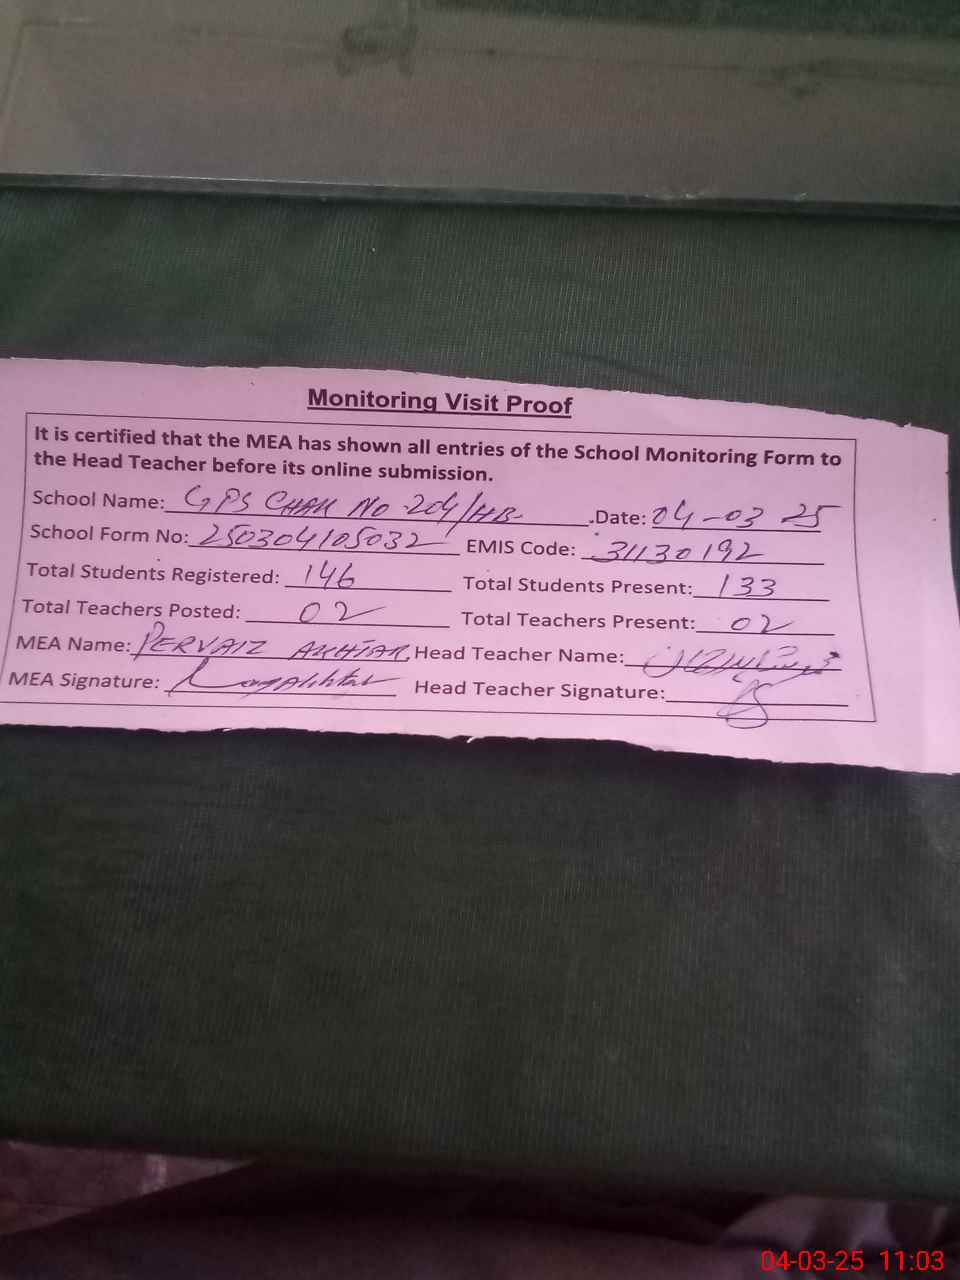 Monitoring Visit Proof
It is certified that the MEA has shown all entries of the School Monitoring Form to
the Head Teacher before its online submission.
School Name: GPS CHAK NO 204/HB .Date: 04-03 25
School Form No: 250304105032 EMIS Code: 31130192
Total Students Registered: 146 Total Students Present: 133
Total Teachers Posted: 02 Total Teachers Present: 02
MEA Name: PERVAIZ AKHTAR Head Teacher Name:
MEA Signature: Head Teacher Signature:
04-03-25 11:03